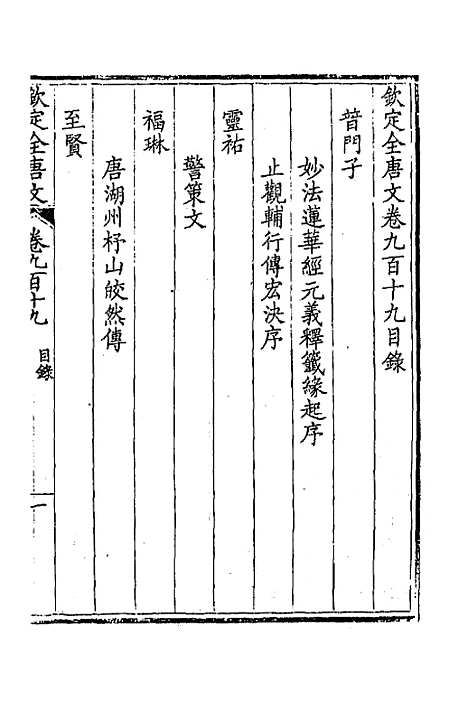 欽定全唐文卷九百十九目錄
普門子
妙法蓮華經元義釋籤緣起序
止觀輔行傳宏決序
靈祐
警策文
福琳
唐湖州杼山皎然傳
至賢
欽定全唐文 卷九百十九 目錄 一